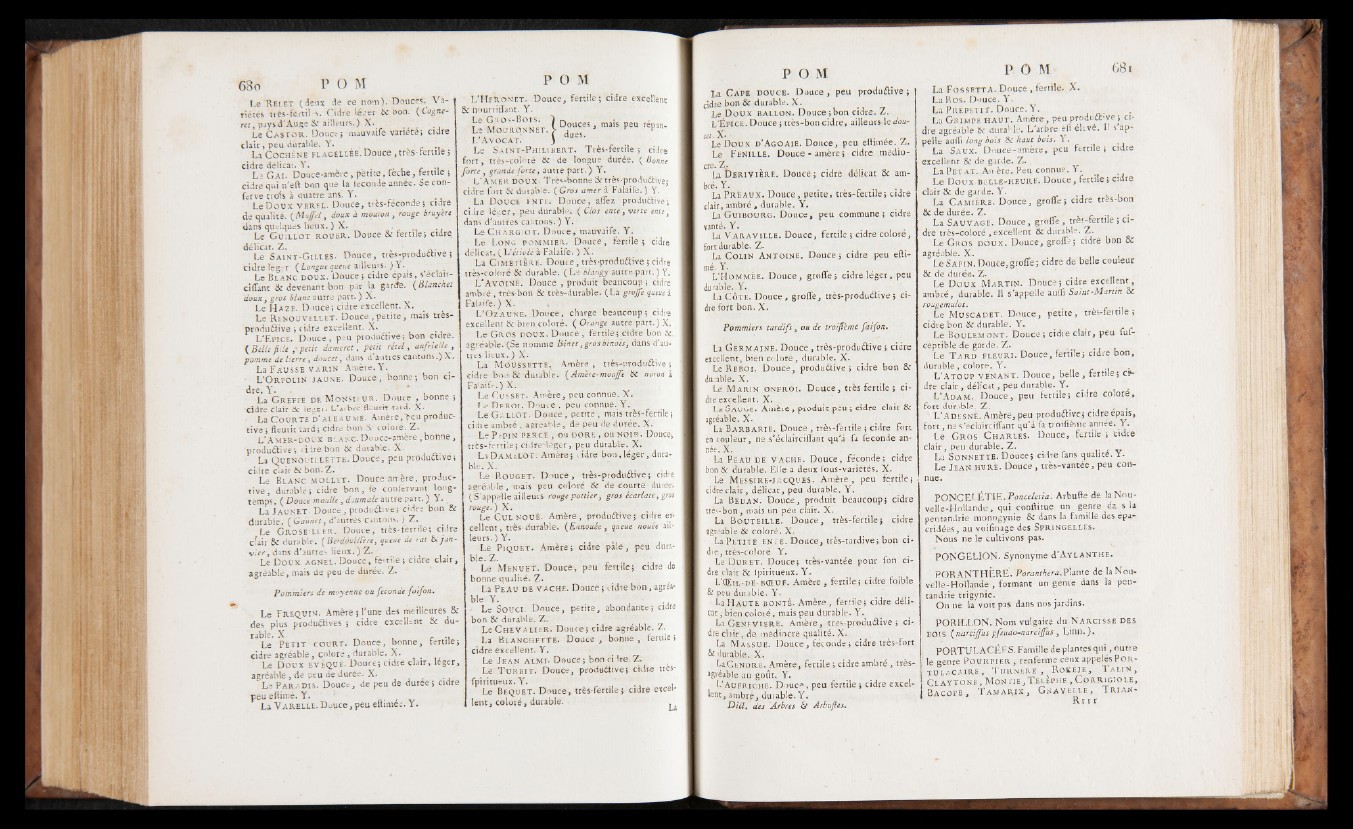 680 P O M
Le Relet (deux de ce nom). Douces. Va-
riétés très-fertiles. Cidre léger & bon. (Cogne-
ret, pays d'Auge & ailleurs.) X.
Le Castor. Douce; mauvaise variété; cidre
clair, peu durable. Y.
La Cochène flagellée. Douce, très-fertile;
cidre délicat. Y.
Le Gai. Douce-amère, petite, sèche, fertile;
cidre qui n'est bon que la seconde année. Se con-
serve trois à quatre ans. Y.
Le Doux veret. Douce, très-féconde; cidre
de qualité. (Muffet, doux à mouton, rouge bruyère
dans quelques lieux.) X.
Le Guillot roger. Douce & fertile; cidre
délicat. Z.
Le Saint-Gilles. Douce, très-productive;
cidre léger (Longue queue ailleurs.) Y.
Le Blanc doux. Douce; cidre épais, s'éclair-
cissant & devenant bon par la garde. (Blanchet
doux, gros blanc autre part.) X.
Le Haze. Douce; cidre excellent. X.
Le Renouvellet. Douce, petite, mais très-
productive; cidre excellent. X.
L'Epice. Douce, peu productive; bon cidre.
(Belle fille, petit dameret, petit rétel, aufrielle,
pomme de lierre, doucet, dans d'autres cantons.) X.
La Fausse varin. Amère. Y.
L'Orpolin jaune. Douce, bonne; bon ci-
dre. Y.
La Greffe de Monsieur. Douce, bonne;
cidre clair & léger. L'arbre fleurit tard. X.
La Courte d'aleaume. Amère, peu produc-
tive; fleurit tard; cidre bon & coloré. Z.
L'Amer-doux blanc. Douce-amère, bonne,
productive; cidre bon & durable. X.
La Quenouillette. Douce, peu productive;
cidre clair & bon. Z.
Le Blanc mollet. Douce amère, produc-
tive, durable; cidre bon, se conservant long-
temps. (Douce moelle, daumale autre part.) Y.
La Jaunet. Douce, productive; cidre bon &
durable. (Gaunet, d'autres cantons.) Z.
Le Groseillier. Douce, très-fertile; cidre
clair & durable. (Berdouillère, queue de rat & jan-
vier, dans d'autres lieux.) Z.
Le Doux agnel. Douce, fertile; cidre clair,
agréable, mais de peu de durée. Z.
Pommiers de moyenne ou seconde saison.
Le Frequin. Amère; l'une des meilleures &
des plus productives; cidre excellent & du-
rable. X.
Le Petit court. Douce, bonne, fertile;
cidre agréable, coloré, durable. X.
Le Doux evêque. Douce; cidre clair, léger,
agréable, de peu de durée. X.
Le Paradis. Douce, de peu de durée; cidre
peu estimé. Y.
La Varelle. Douce, peu estimée. Y.
P O M
L'Heronet. Douce, fertile; cidre excellent
& nourrissant. Y.
Le Gros-Bois.
Le Mouronnet. Douces, mais peu répan-
L'Avocat. dues.
Le Saint-Philibert. Très-fertile; cidre
fort, très-coloré & de longue durée. (Bonne
sorte, grande sorte, autre part.) Y.
L'Amer doux. Très-bonne & très-productive;
cidre fort & durable. (Gros amer à Falaise.) Y.
La Douce ente. Douce, assez productive;
cidre léger, peu durable. (Clos ente, verte ente,
dans d'autres cantons.) Y.
Le Chargiot. Douce, mauvaise. Y.
Le Long pommier. Douce, fertile; cidre
délicat. (L'étiolé à Falaise.) X.
La Cimetière. Douce, très-productive; cidre
très-coloré & durable. (Le blangy autre part.) Y.
L'Avoine. Douce, produit beaucoup; cidre
ambré, très-bon & très-durable. (La grosse queue à
Falaise.) X.
L'Ozaune. Douce, charge beaucoup; cidre
excellent & bien coloré. (Orange autre part.) X.
Le Gros doux. Douce, fertile; cidre bon &
agréable. (Se nomme binet, gros binets, dans d'au-
tres lieux.) X.
La Moussette. Amère, très-productive;
cidre bon & durable. (Amère-mousse & noron à
Falaise.) X.
Le Cusset. Amère, peu connue. X.
Le Derot. Douce, peu connue. Y.
Le Gallot. Douce, petite, mais très-fertile;
cidre ambré, agréable, de peu de durée. X.
Le Pepin percé, ou doré, ou noir. Douce,
très-fertile; cidre léger, peu durable. X.
Le Damelot. Amère; cidre bon, léger, dura-
ble. X.
Le Rouget. Douce, très-productive; cidre
agréable, mais peu coloré & de courte durée.
(S'appelle ailleurs rouge pottier, gros écarlate, gros
rouge.) X.
Le Cul noué. Amère, productive; cidre ex-
cellent, très-durable. (Ennouée, queue nouée ail-
leurs.) Y.
Le Piquet. Amère; cidre pâle, peu dura-
ble. Z.
Le Menuet. Douce, peu fertile; cidre de
bonne qualité. Z.
La Peau de vache. Douce; cidre bon, agréa-
ble. Y.
Le Souci. Douce, petite, abondante; cidre
bon & durable. Z.
Le Chevalier. Douce; cidre agréable. Z.
La Blanchette. Douce, bonne, fertile;
cidre excellent. Y.
Le Jean almi. Douce; bon cidre. Z.
Le Turbet. Douce, productive; cidre très-
spiritueux. Y.
Le Bequet. Douce, très-fertile; cidre excel-
lent, coloré, durable.
La
P O M
La Cape douce. Douce, peu productive;
cidre bon & durable. X.
Le Doux ballon. Douce; bon cidre. Z.
L'Épice. Douce; très-bon cidre, ailleurs le dou-
cet. X.
Le Doux d'Agoaie. Douce, peu estimée. Z.
Le Fenille. Douce-amère; cidre médio-
cre. Z.
La Derivière. Douce; cidre délicat & am-
bré. Y.
La Préaux. Douce, petite, très-fertile; cidre
clair, ambré, durable. Y.
La Guibourg. Douce, peu commune; cidre
vanté. Y.
La Varaville. Douce, fertile; cidre coloré,
fort durable. Z.
La Colin Antoine. Douce; cidre peu esti-
mé. Y.
L'Hommée. Douce, grosse; cidre léger, peu
durable. Y.
La Côte. Douce, grosse, très-productive; ci-
dre fort bon. X.
Pommiers tardifs, ou de troisième saison.
La Germaine. Douce, très-productive; cidre
excellent, bien coloré, durable. X.
Le Reboi. Douce, productive; cidre bon &
durable. X.
Le Marin onfroi. Douce, très fertile; ci-
dre excellent. X.
La Sauge. Amère, produit peu; cidre clair &
agréable. X.
La Barbarie. Douce, très-fertile; cidre fort
en couleur, ne s'éclaircissant qu'à sa seconde an-
née. X.
La Peau de vache. Douce, féconde; cidre
bon & durable. Elle a deux sous-variétés. X.
Le Messire-Jacques. Amère, peu fertile;
cidre clair, délicat, peu durable. Y.
La Bedan. Douce, produit beaucoup; cidre
très-bon, mais un peu clair. X.
La Bouteille. Douce, très-fertile; cidre
agréable & coloré. X.
La Petite ente. Douce, très-tardive; bon ci-
dre, très-coloré. Y.
Le Duret. Douce; très-vantée pour son ci-
dre clair & spiritueux. Y.
L'Œil-de-bœuf. Amère, fertile; cidre foible
& peu durable. Y.
La Haute bonté. Amère, fertile; cidre déli-
cat, bien coloré, mais peu durable. Y.
La Genevière. Amère, très-productive; ci-
dre clair, de médiocre qualité. X.
La Massue. Douce, féconde; cidre très-fort
& durable. X.
La Cendre. Amère, fertile; cidre ambré, très-
agréable au goût. Y.
L'Aufriche. Douce, peu fertile; cidre excel-
lent, ambré, durable. Y.
Dict. des Arbres & Arbustes.
P O M 681
La Fossetta. Douce, fertile. X.
La Ros. Douce. Y.
La Prepetit. Douce. Y.
La Grimpe haut. Amère, peu productive; ci-
dre agréable & durable. L'arbre est élevé. Il s'ap-
pelle aussi long bois & haut bois. Y.
La Saux. Douce-amère, peu fertile; cidre
excellent & de garde. Z.
La Petat. Amère. Peu connue. Y.
Le Doux belle-heure. Douce, fertile; cidre
clair & de garde. Y.
La Camière. Douce, grosse; cidre très-bon
& de durée. Z.
La Sauvage. Douce, grosse, très-fertile; ci-
dre très-coloré, excellent & durable. Z.
Le Gros doux. Douce, grosse; cidre bon &
agréable. X.
Le Sapin. Douce, grosse; cidre de belle couleur
& de durée. Z.
Le Doux Martin. Douce; cidre excellent,
ambré, durable. Il s'appelle aussi Saint-Martin &
rougemulot.
Le Muscadet. Douce, petite, très-fertile;
cidre bon & durable. Y.
Le Boulemont. Douce; cidre clair, peu sus-
ceptible de garde. Z.
Le Tard fleuri. Douce, fertile; cidre bon,
durable, coloré. Y.
L'Atoup venant. Douce, belle, fertile; ci-
dre clair, délicat, peu durable. Y.
L'Adam. Douce, peu fertile; cidre coloré,
fort durable. Z.
L'Adesné. Amère, peu productive; cidre épais,
fort, ne s'éclaircissant qu'à sa troisième année. Y.
Le Gros Charles. Douce, fertile; cidre
clair, peu durable. Z.
La Sonnette. Douce; cidre sans qualité. Y.
Le Jean hure. Douce, très-vantée, peu con-
nue.
PONCELÉTIE. Ponceletia. Arbuste de la Nou-
velle-Hollande, qui constitue un genre dans la
pentandrie monogynie & dans la famille des epa-
cridées, au voisinage des Springelles.
Nous ne le cultivons pas.
PONGELION. Synonyme d'Aylanthe.
PORANTHÈRE. Poranthera. Plante de la Nou-
velle-Hollande, formant un genre dans la pen-
tandrie trigynie.
On ne la voit pas dans nos jardins.
PORILLON. Nom vulgaire du Narcisse des
bois (narcissus pseudo-narcissus, Linn.).
PORTULACÉES. Famille de plantes qui, outre
le genre Pourpier, renferme ceux appelés Por-
tulacaire, Turnère, Rokeje, Talin,
Claytone, Montie, Télèphe, Corrigiole,
Bacope, Tamarix, Gnavelle, Trian-
Rrrr